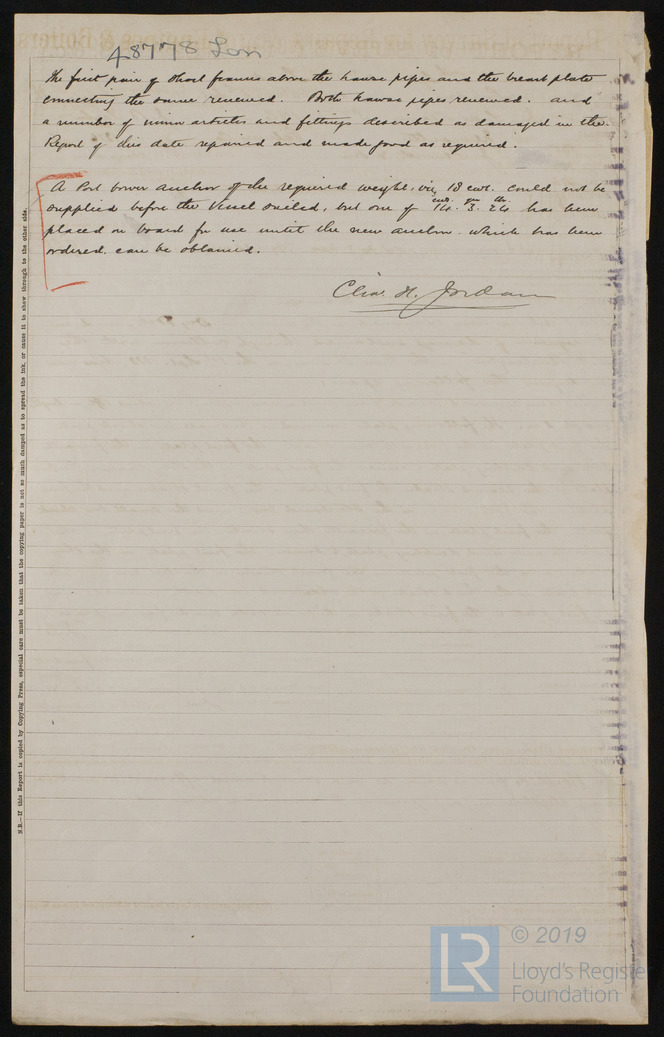 48778 Lon
The first pair of short frames above the hawse pipes and the breast plate
connecting the same renewed. Both hawse pipes renewed. and
a number of minor articles and fittings described as damaged in the
Report of this date repaired and made good as required.
A Port bower anchor of the required weight, viz, 18 cwt. could not be
supplied before the Vessel sailed, but one of 14 cwt. 3 qrs 24 lbs has been
placed on board for use until the new anchor. which has been
ordered. can be obtained.
Chas. H. Jordan
N.B.—If this Report is copied by Copying Press, especial care must be taken that the copying paper is not so much damped as to spread the ink, or cause it to show through to the other side.
LR
© 2019
Lloyd's Register
Foundation